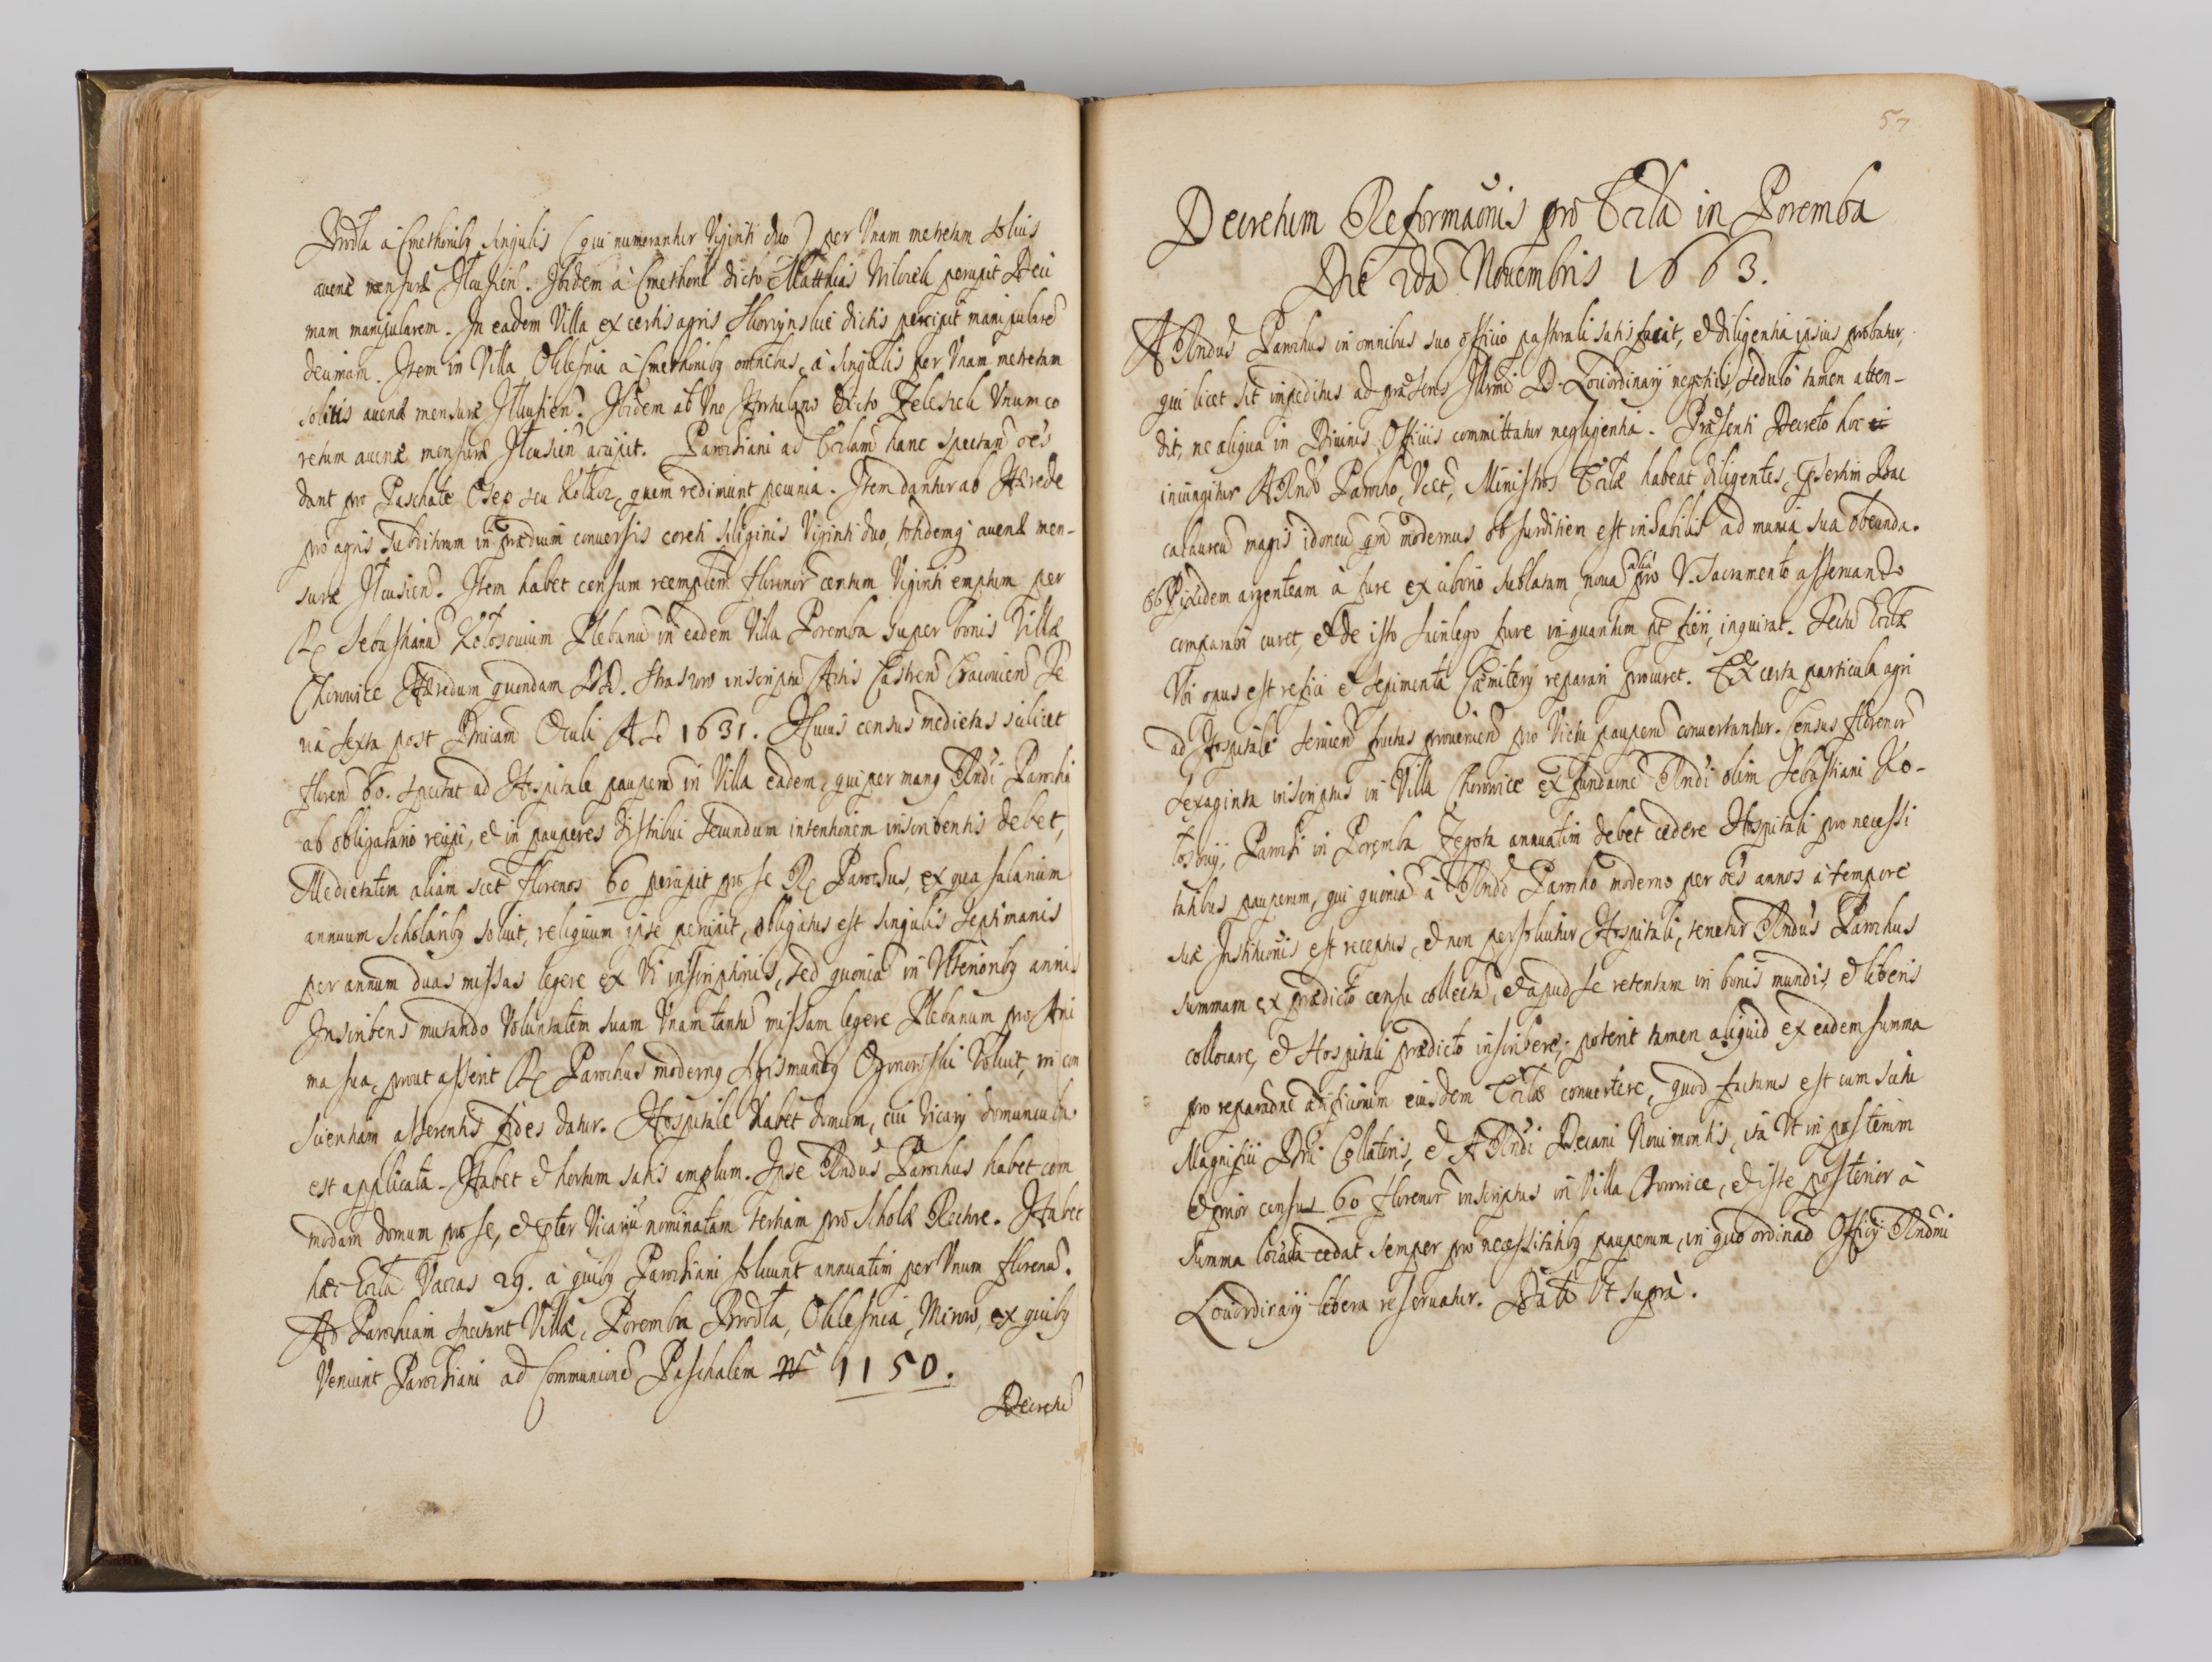 Brodla à Cmethonibg singulis (qui numerantur Viginti duo) per Vnam metretam solius
auenæ mensuræ Ilcusien. Ibidem à Cmethone dicto Matthias Wilczek percipit Deci
mam manipularem. In eadem Villa ex certis agris dictis percipit manipularē
decimam. Item in Villa Oklesnia à Cmethonibg omnibus, à singulis per Vnam metretam
solitis auenæ mensuræ Ilcusien. Ibidem ab Vno Hortulano dicto Vnum co
retum auenæ mensuræ Ilcusien accipit. Parochiani ad Eccłam hanc spectan oēs
dant pro Paschate Osep seu Kołacz, quem redimunt pecunia. Item dantur ab Hærede
pro agris Subditorum in prædium conuersis coreti siliginis Viginti duo, totidemq auenæ men-
suræ Ilcusien. Item habet censum reemptem florenor centum Viginti emptum per
R Sebastianū Kołosouium Plebanū in eadem Villa Poremba super bonis Villæ
Choiowice Hæredum quondam DD. inscriptū Actis Castren Cracouien Fe
ria sexta post Dnicam Oculi A D 1631. Huius census medietas scilicet
floren 60. spectat ad Hospitale pauperū in Villa eadem, qui per mang Rndi Parochi
ab obligatario recipi, et in pauperes distribui secundum intentionem inscribentis debet,
Medietatem aliam scet florenos 60 percipit pro se R Parochus, ex qua salarium
annuum Scholaribg soluit, reliquum ipse percipit, obligatus est singulis septimanis
per annum duas missas legere ex Vi inscriptionis, sed quoniā in Vlterioribg annis
Inscribens mutando Voluntatem suam Vnam tantū missam legere Plebanum pro Ani
ma sua, prout asserit R Parochus moderng Sigismundg Voluit, in con
scientiam asserentis fides datur. Hospitale habet domum, cui Vicarij domuncula
est applicata. Habet et hortum satis amplum. Ipse Rndus Parochus habet com
modam domum pro se, et pter Vicarij nominatam tertiam pro Scholæ Rectore. Habet
hæc Eccła Vaccas 29. à quibg Parochiani soluunt annuatim per Vnum florenū.
Ad Parochiam spectant Villæ, Poremba Brodla, Oklesnia, Mirow, ex quibg
Veniunt Parochiani ad Communionē Paschalem No 1150.
Decretū
57
Decretum Reformaōnis pro Eccła in Poremba
Die 2da Nouembris 1663.
A Rndus Parochus in omnibus suo officio pastorali satis facit, et diligentia ipsius probatur,
qui licet sit impeditus ad præsens Illrmi D. Locíordinarij negotiis, sedulò tamen atten-
dit, ne aliqua in Diuinis Officiis committatur negligentia. Præsenti Decreto hoc ei
iniungitur A Rndo Parocho, Vt Ministros Eccłæ habeat diligentes, psertim Bac
calaureū magis idoneū qm modernus ob surditiem est inhabilis ad munia sua obeunda.
ob Pixidem argenteam à fure ex ciborio sublatam, noua aliā pro V. Sacramento asseruando
comparari curet, et de isto sacrilego fure in quantum pt fieri, inquirat. Tectū Eccłæ
Vbi opus est refici et sepimenta Cæmiterij reparari procuret. Ex certa particula agri
ad Hospitale seruien fructus prouenien pro Victu pauperū conuertantur. Census florenor
sexaginta inscriptus in Villa Choiowice ex fundaōne Rndi olim Sebastiani Ko-
łosouij, Parochi in Poremba Zegota annuatim debet cedere Hospitali pro necessi
tatibus pauperum, qui quoniā à Rndo Parocho moderno per oēs annos à tempore
suæ Institutionis est receptus, et non persoluitur Hospitali, tenetur Rndus Parochus
summam ex prædicto censu collectā, et apud se retentam in bonis mundis et liberis
collocare, et Hospitali prædicto inscribere; poterit tamen aliquid ex eadem summa
pro reparaōne ædificiorum eiusdem Eccłæ conuertere, quod facturus est cum scitu
Magnifici Dni Collatoris, et A Rndi Decani Noui montis, ita Vt in posterum
et prior census 60 florenor inscriptus in Villa Choiowice, et iste posterior à
Summa locata cedat semper pro necessitatibg pauperum, in quo ordinaō Officij Rndmi
Locíordinarij libera reseruatur. Datū Vt supra.